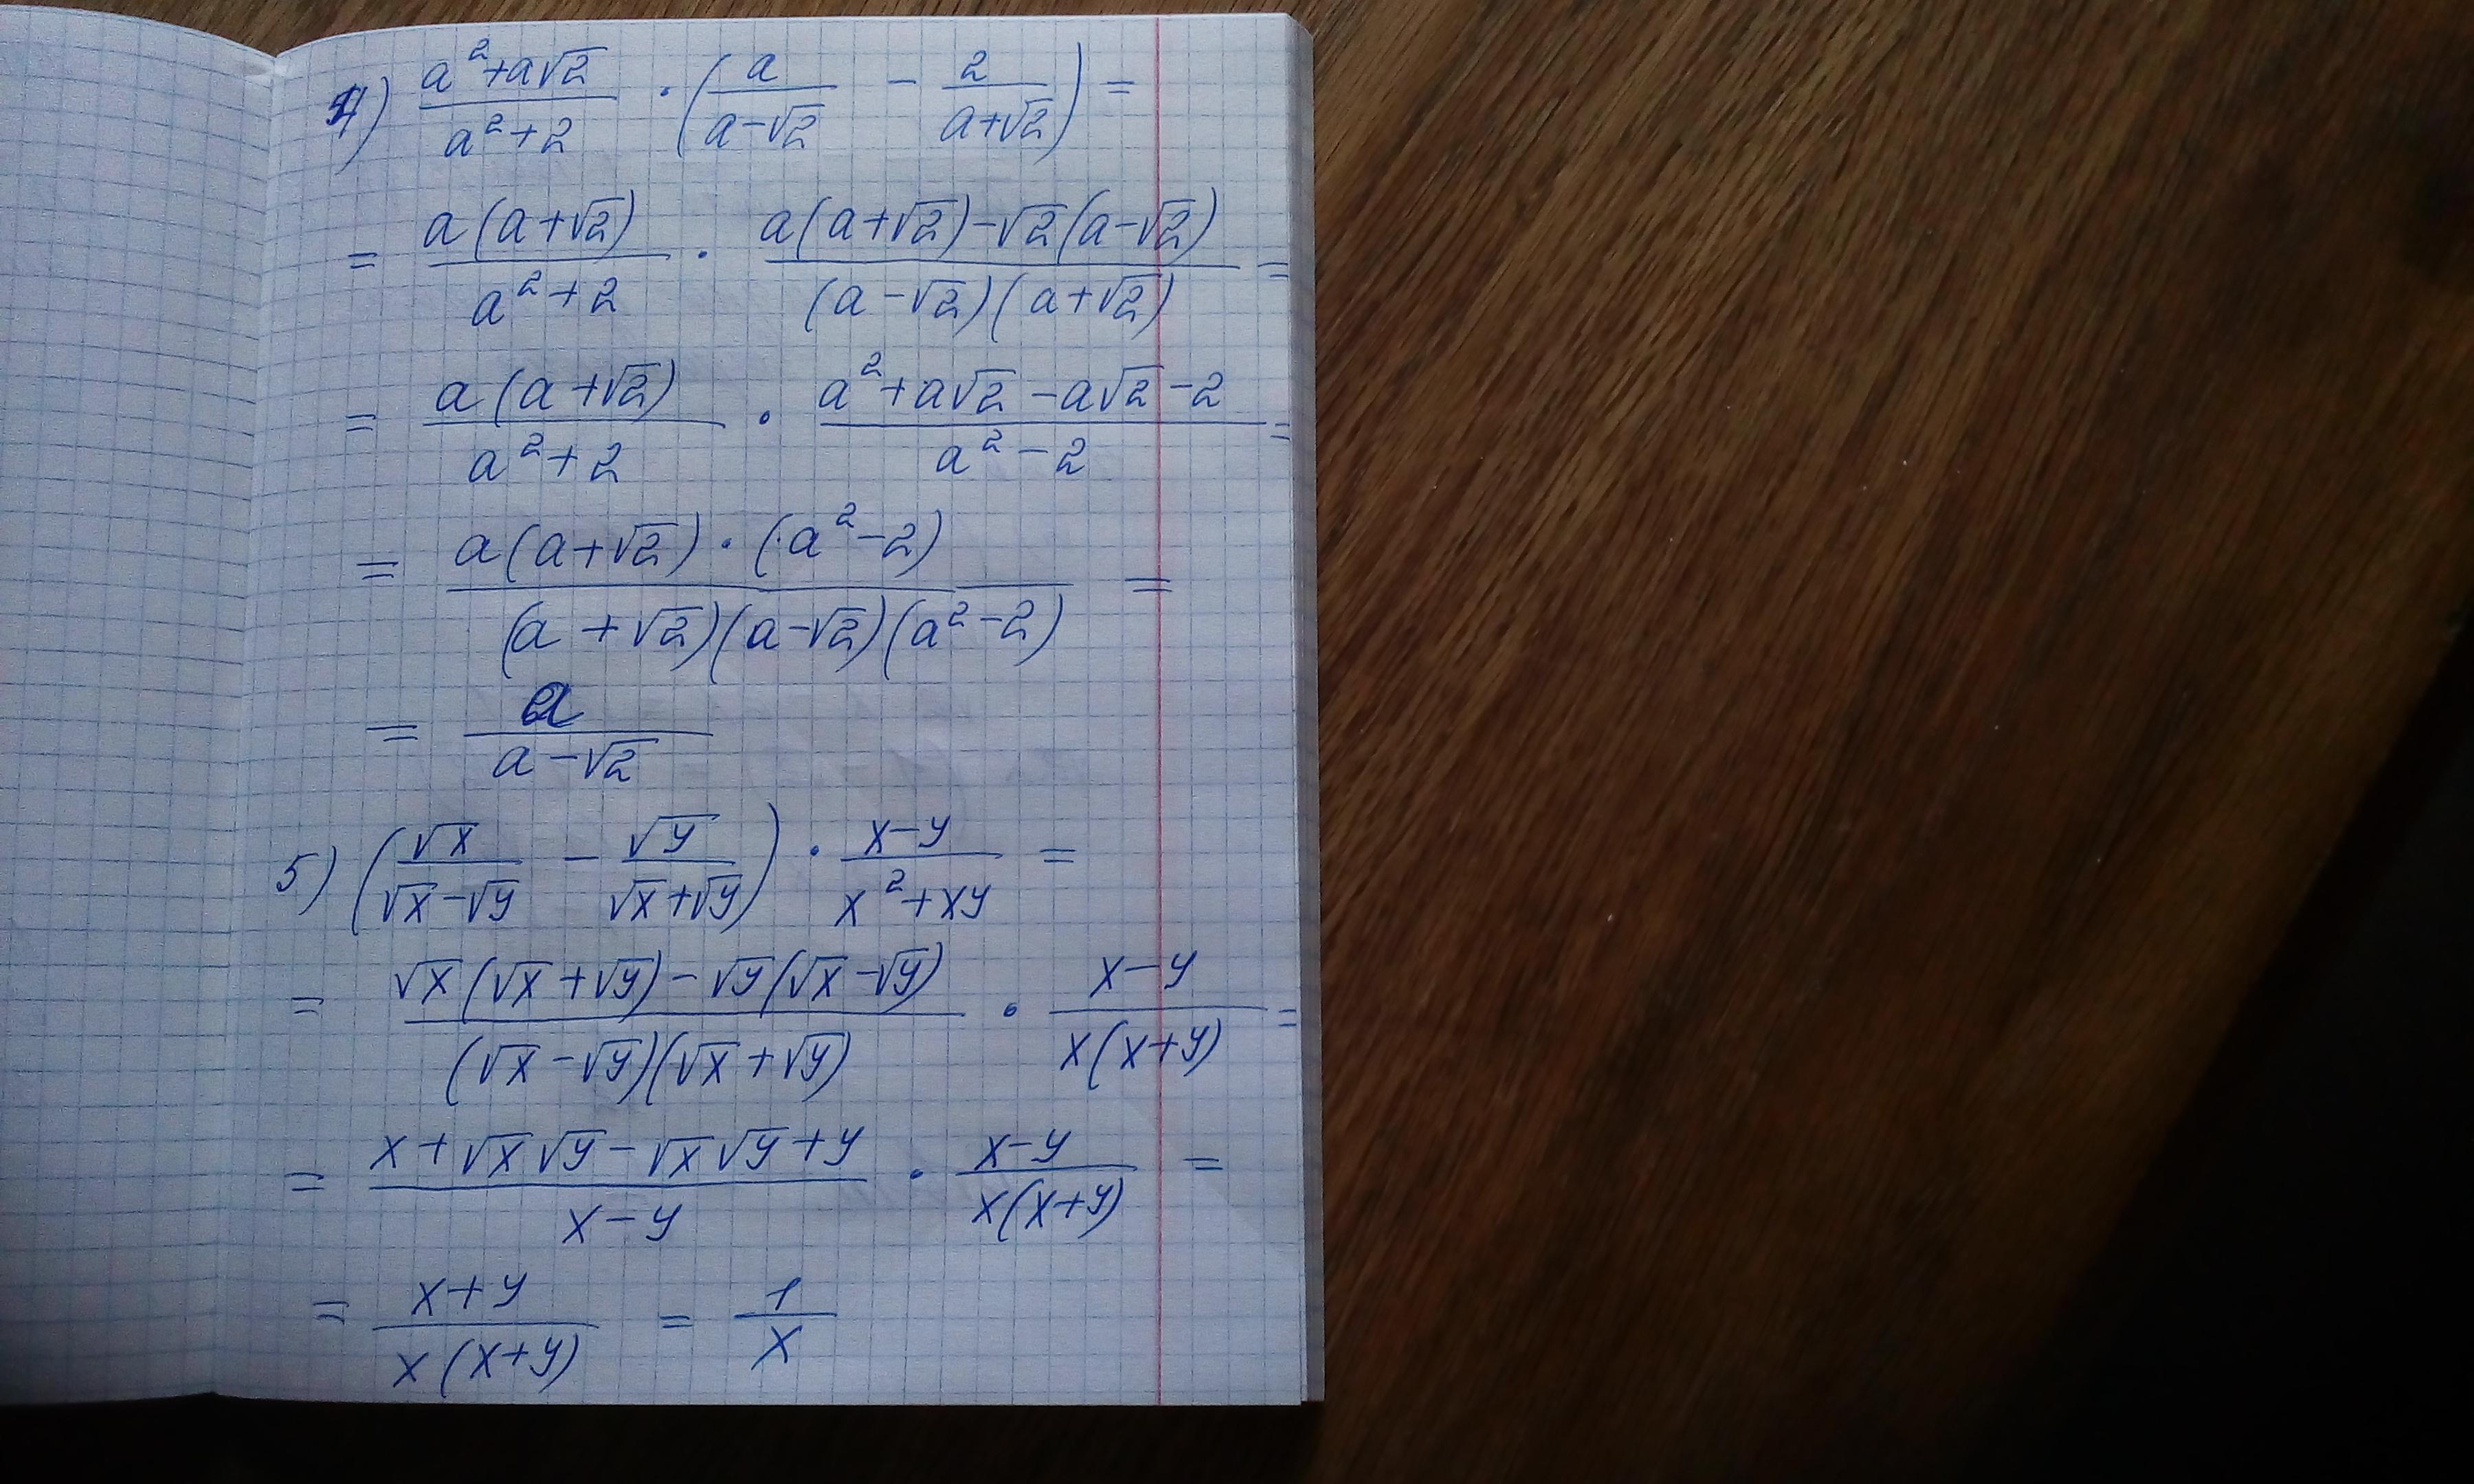 4) (a²+a√2)/(a²+2) · (a/(a-√2) - 2/(a+√2)) =
= a(a+√2)/(a²+2) · (a(a+√2)-√2(a-√2))/((a-√2)(a+√2)) =
= a(a+√2)/(a²+2) · (a²+a√2-a√2-2)/(a²-2) =
= (a(a+√2)·(a²-2))/((a+√2)(a-√2)(a²-2)) =
= a/(a-√2)
5) (√x/(√x-√y) - √y/(√x+√y)) · (x-y)/(x²+xy) =
= (√x(√x+√y)-√y(√x-√y))/((√x-√y)(√x+√y)) · (x-y)/(x(x+y)) =
= (x+√x√y-√x√y+y)/(x-y) · (x-y)/(x(x+y)) =
= (x+y)/(x(x+y)) = 1/x